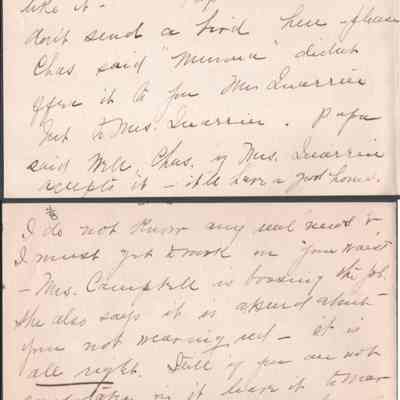 like it -
don't send a bird here - please
Chas said "Mumma" didn't
offer it to you Mrs Quarrier
but to Mrs. Quarrier. Papa
said Well, Chas, if Mrs. Quarrier
accepts it - it'll have a good home.
I do not know any real news &
I must get to work on your waist
- Mrs. Campbell is bossing the job.
She also says it is absurd about
you not wearing red - it is
all right. Still if you are not
it leave it to